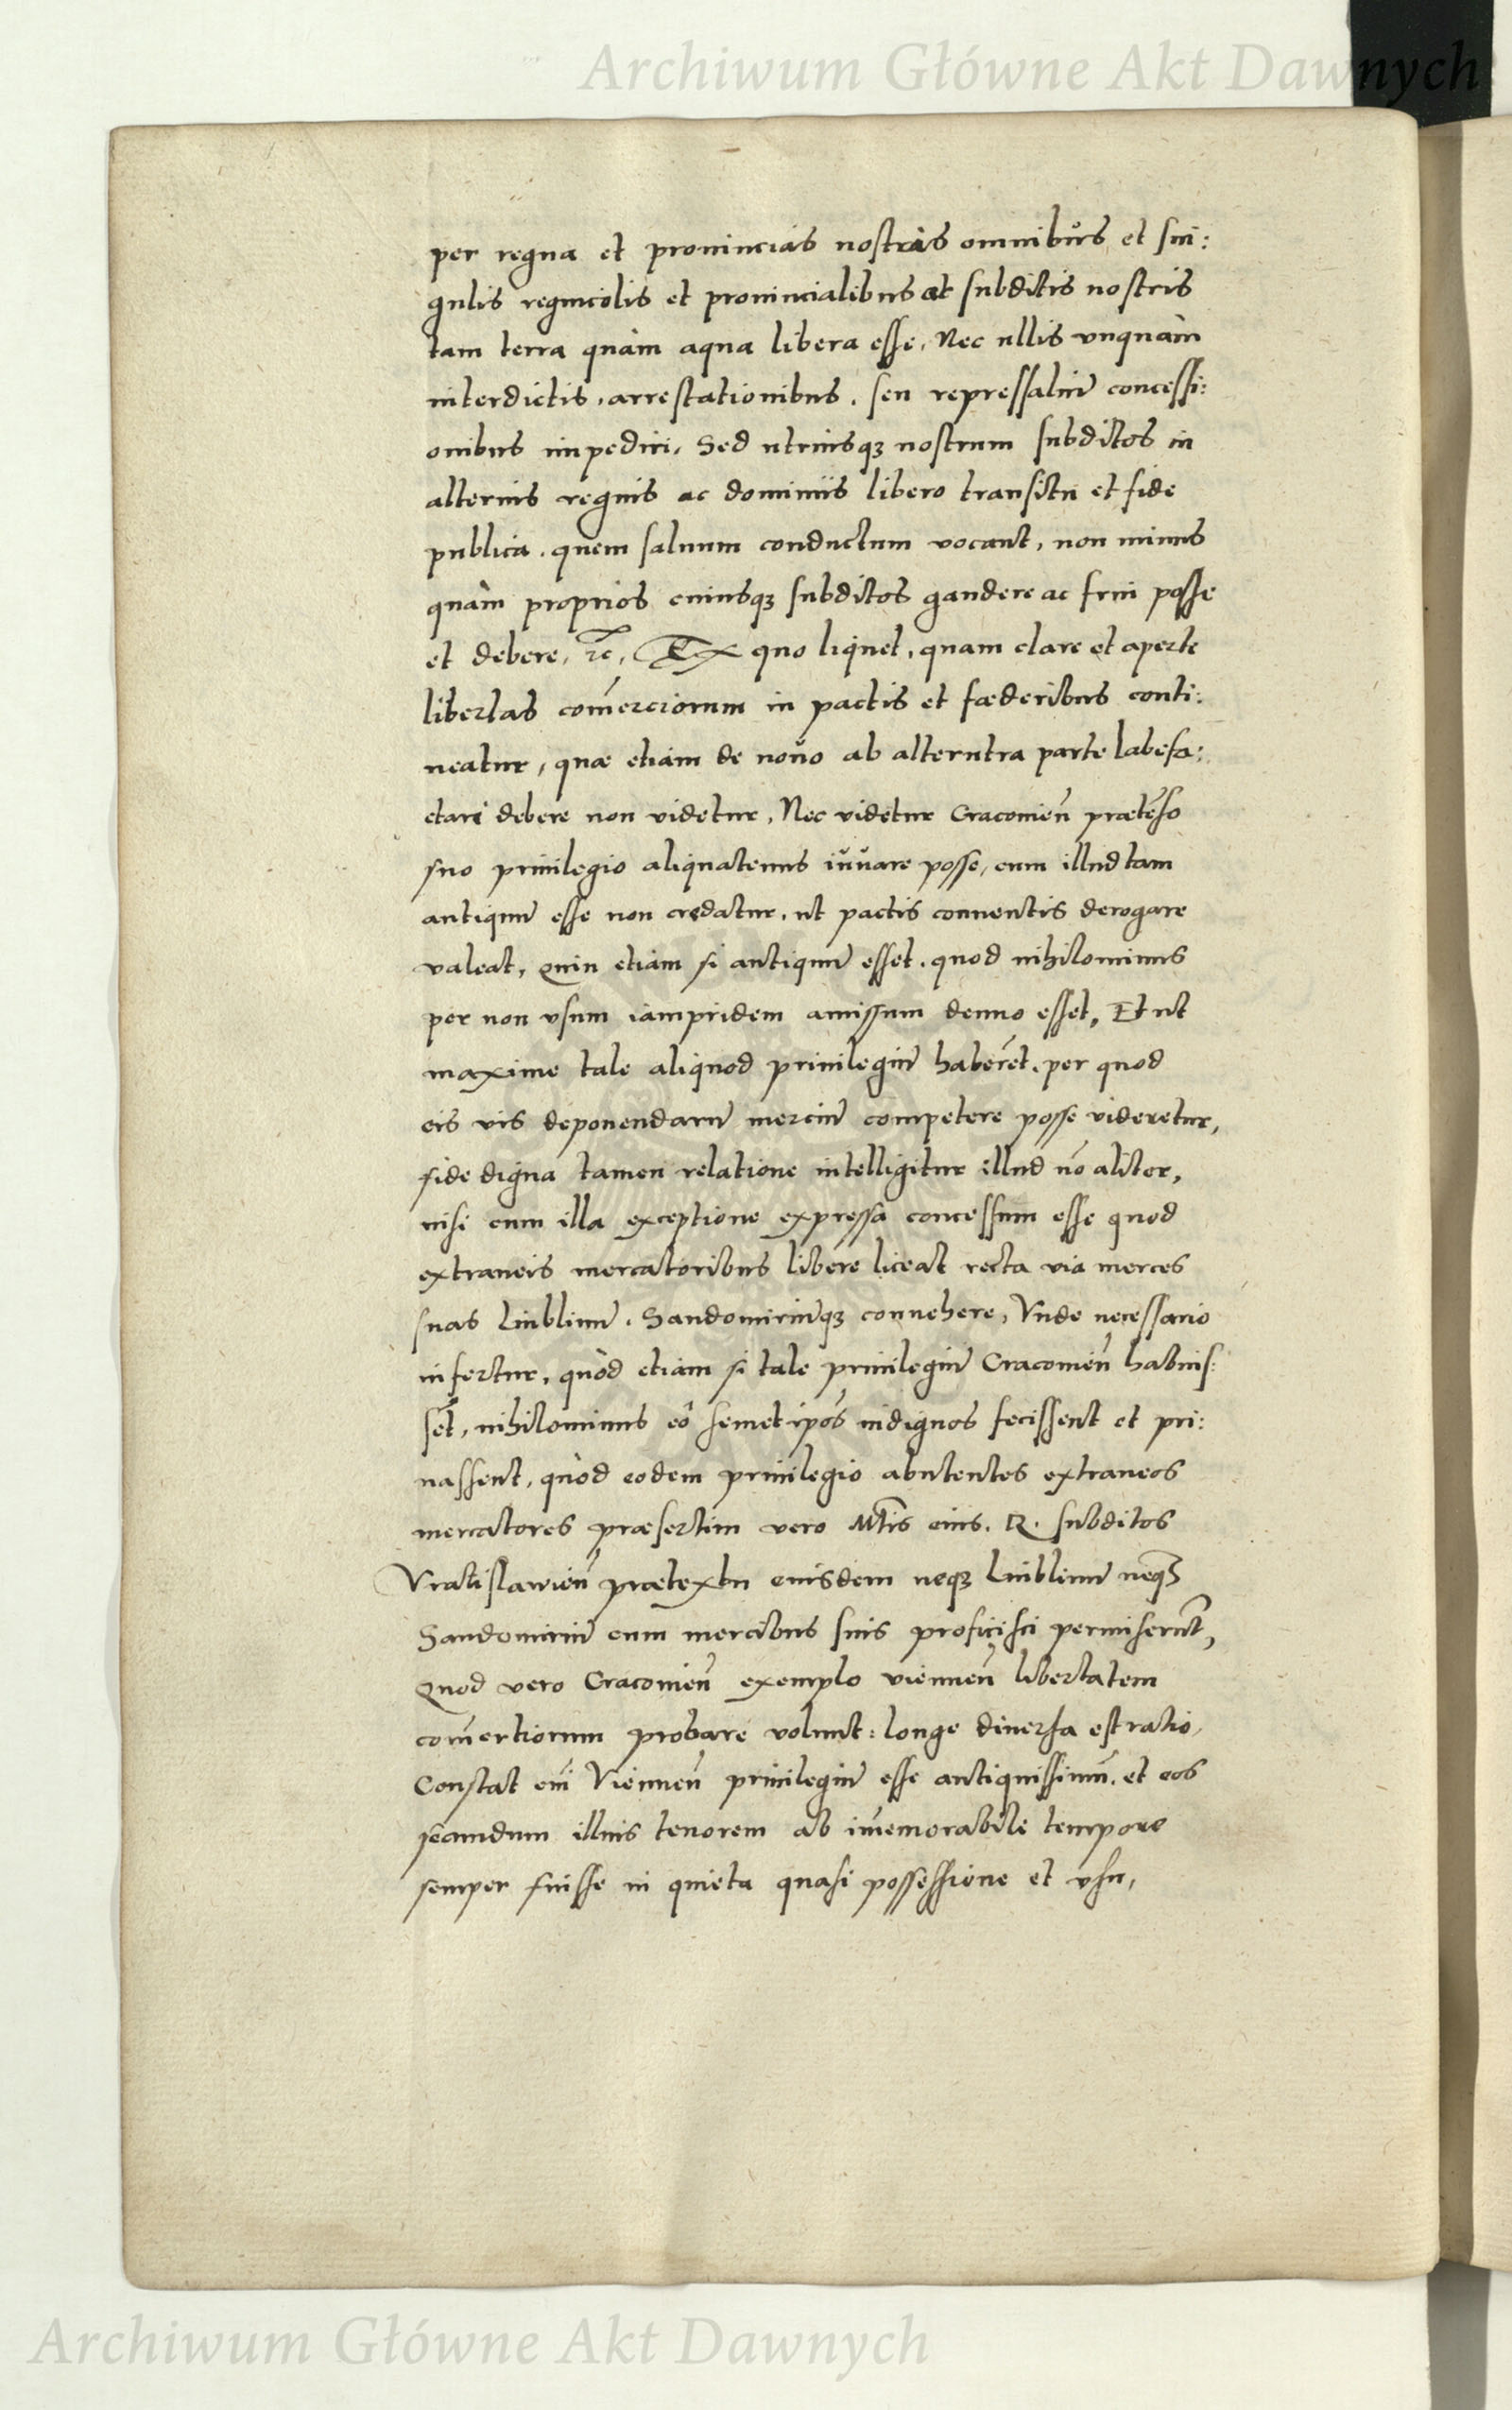 Archiwum Główne Akt Dawnych
per regna et prouincias nostras omnibus et sin:
gulis regnicolis et prouincialibus ac subditis nostris
tam terra quàm aqua libera esse, Nec ullis vnquàm
interdictis, arrestationibus, seu repressaliū concessi:
onibus impediri, Sed utriusqȝ nostrum subditos in
alterius regnis ac dominiis libero transitu et fide
publica, quem saluum conductum vocant, non minus
quàm proprios cuiusqȝ subditos gaudere ac frui posse
et debere, ꝛc̃, Ex quo liquet, quam clare et aperte
libertas com̃erciorum in pactis et fœderibus conti:
neatur, quæ etiam de nouo ab alterutra parte labefa:
ctari debere non videtur, Nec videtur Cracouieñ præteñso
suo priuilegio aliquatenus iuuare posse, cum illud tam
antiquū esse non credatur, ut pactis conuentis derogare
valeat, Quin etiam si antiquū esset, quod nihilominus
per non vsum iampridem amissum denuo esset, Et ut
maxime tale aliquod priuilegiū habereñt, per quod
eis vis deponendarū merciū competere posse videretur,
fide digna tamen relatione intelligitur illud nõ aliter,
nisi cum illa exceptione expressa concessum esse quod
extraneis mercatoribus libere liceat recta via merces
suas Liublinū, Sandomiriūqȝ conuehere, Vnde necessario
infertur, quòd etiam si tale priuilegiū Cracouieñ habuis:
señt, nihilominus eô semet ipõs indignos fecissent et pri:
uassent, quòd eodem priuilegio abutentes extraneos
mercatores præsertim vero Mt̃is eius. R. subditos
Vratislauieñ prætextu eiusdem neqȝ Liublinū neqȝ
Sandomiriū cum mercibus suis proficisci permiseruñt,
Quod vero Cracouieñ exemplo vienneñ libertatem
com̃ertiorum probare volunt: longe diuersa est ratio,
Constat eñi Vienneñ priuilegiū esse antiquissimū, et eos
secundum illius tenorem ab im̃emorabile tempore
semper fuisse in quieta quasi possessione et vsu,
Archiwum Główne Akt Dawnych